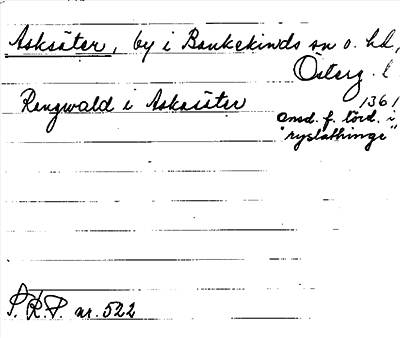 Asksäter, by i Bankekinds sn o. hd,
Österg. l.
Rengwald i Asksäter 1361
omd. f. törd. i
"ryslathinge"
S.R.P. nr. 522